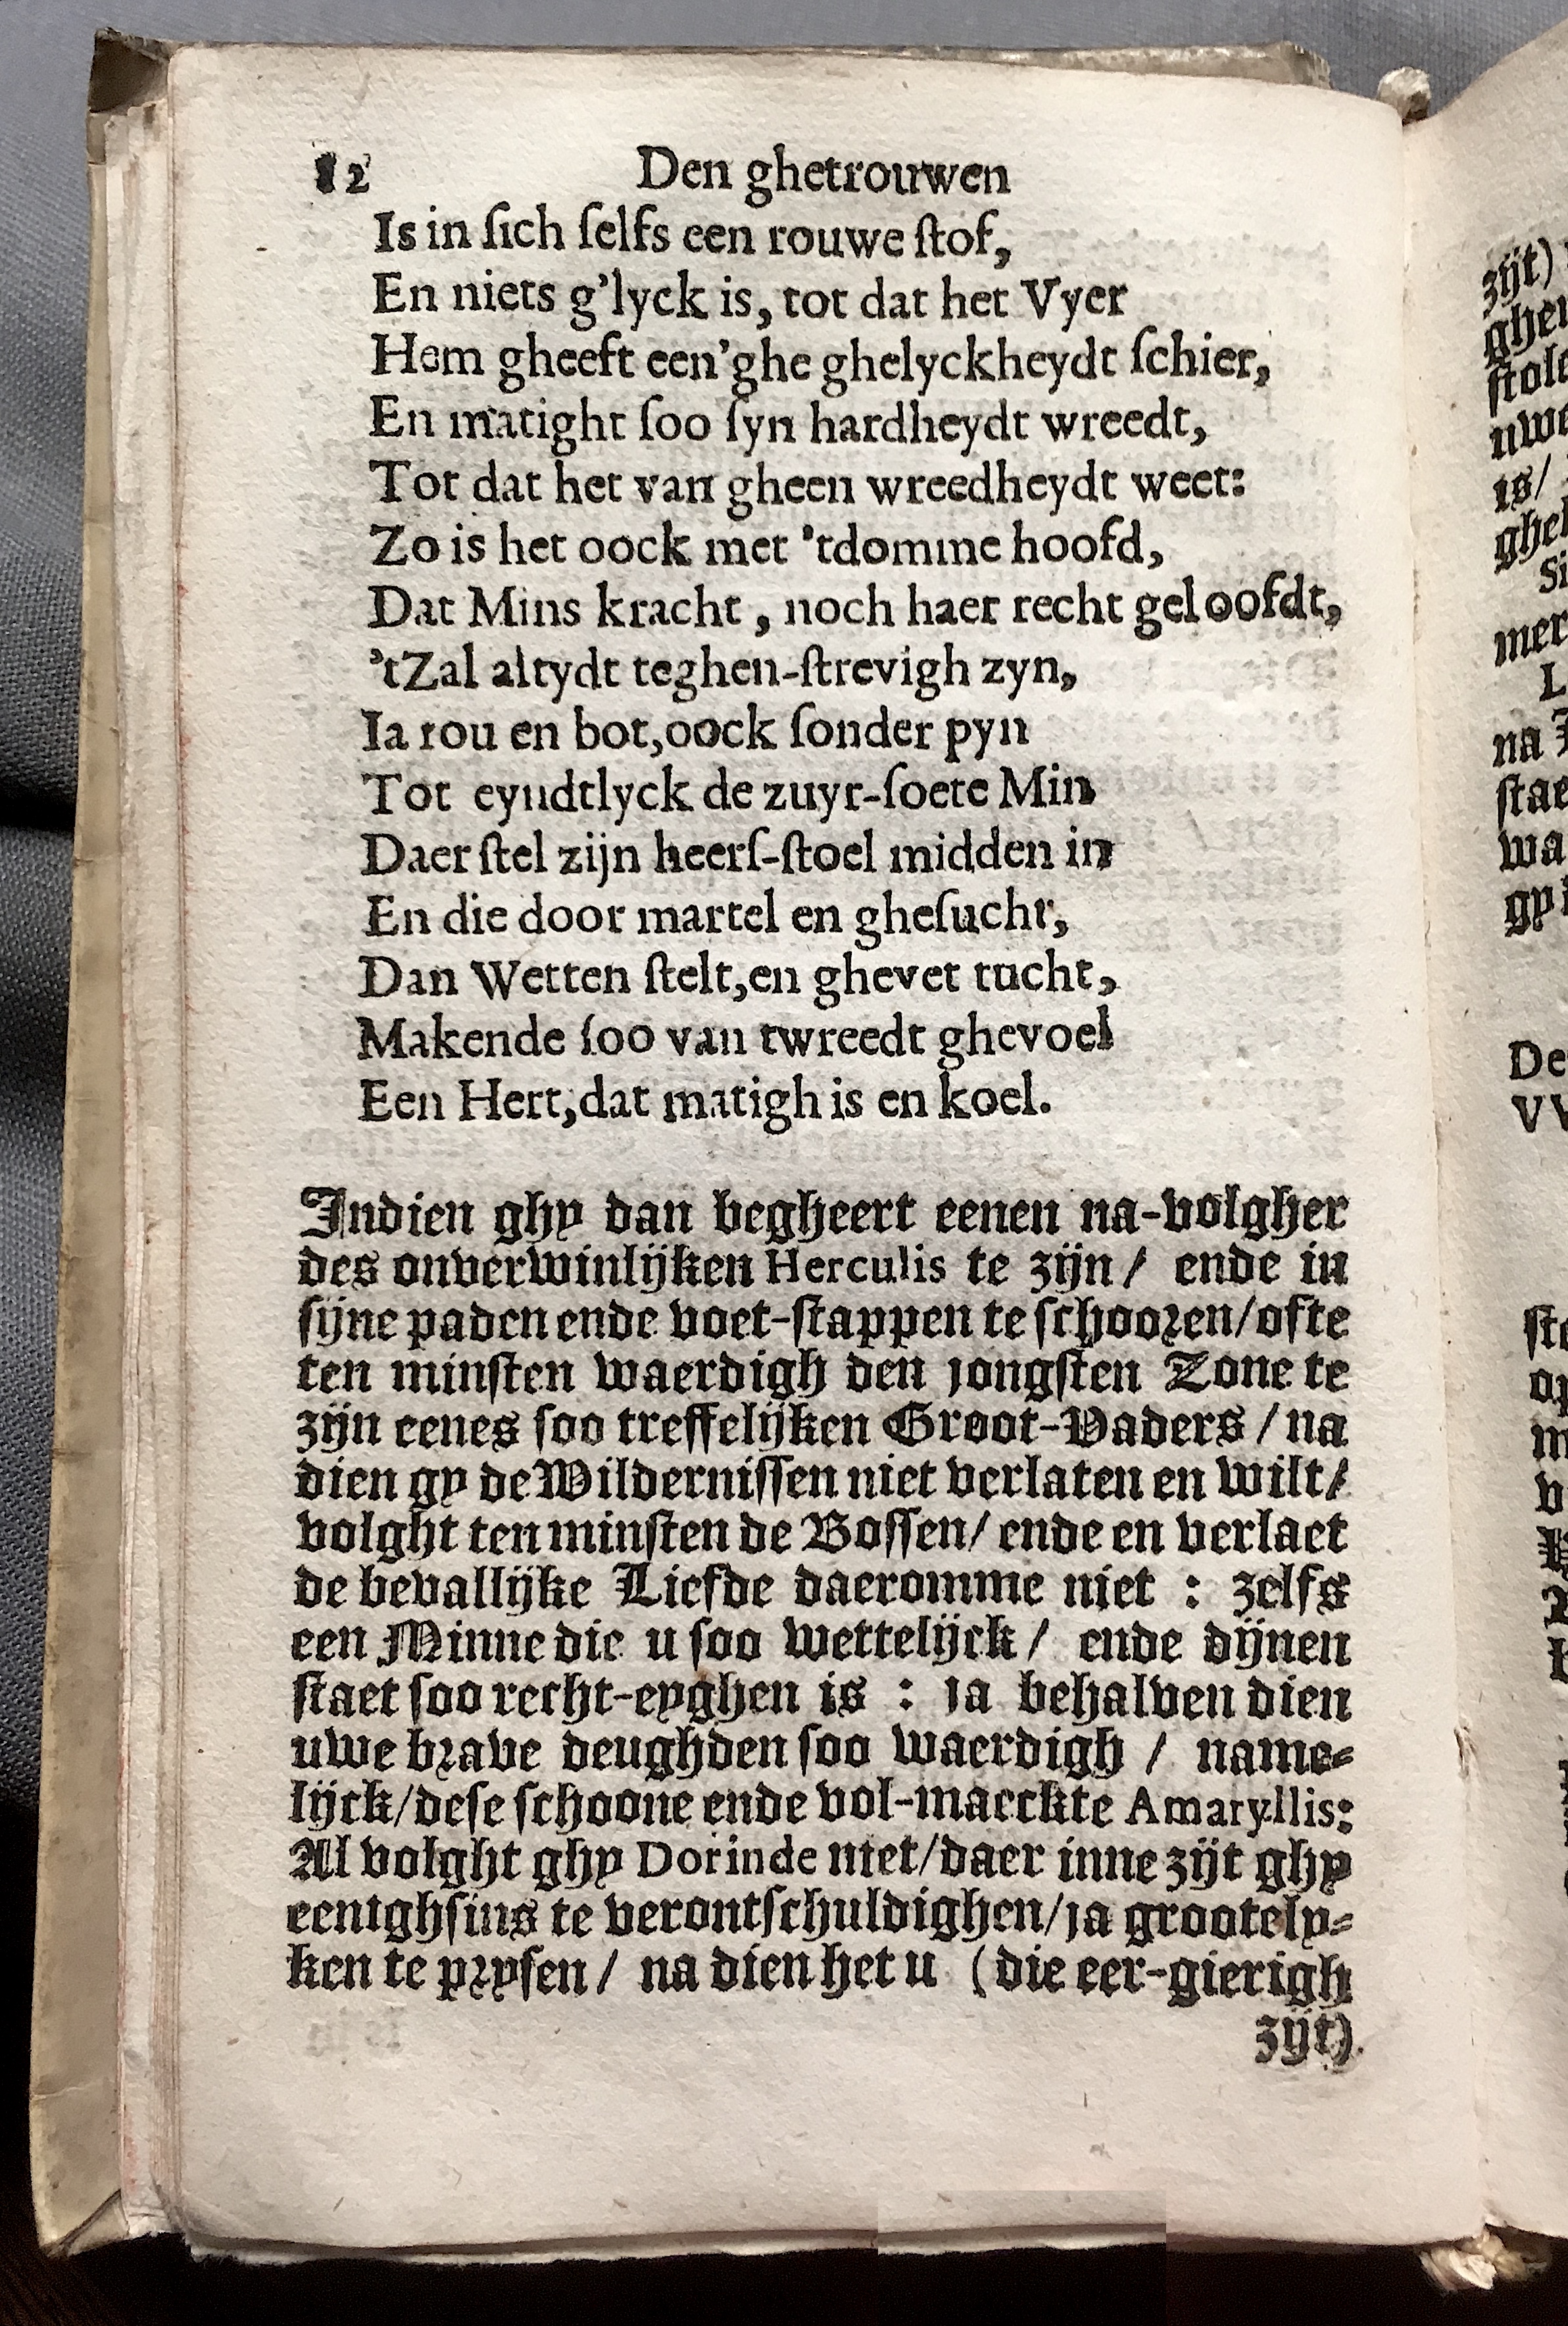 12 Den ghetrouwen
Is in ſich ſelfs een rouwe ſtof,
En niets g'lyck is, tot dat het Vyer
Hem gheeft een'ghe ghelyckheydt ſchier,
En matight ſoo ſyn hardheydt wreedt,
Tot dat het van gheen wreedheydt weet:
Zo is het oock met 'tdomme hoofd,
Dat Mins kracht, noch haer recht geloofdt,
'tZal altydt teghen-ſtrevigh zyn,
Ia rou en bot, oock ſonder pyn
Tot eyndtlyck de zuyr-ſoete Min
Daer ſtel zijn heerſ-ſtoel midden in
En die door martel en gheſucht,
Dan Wetten ſtelt, en ghevet tucht,
Makende ſoo van twreedt ghevoel
Een Hert, dat matigh is en koel.
Indien ghy dan begheert eenen na-volgher
des onverwinlijken Herculis te zijn / ende in
ſijne paden ende voet-ſtappen te ſchooren/ofte
ten minſten waerdigh den jongſten Zone te
zijn eenes ſoo treffelijken Groot-Vaders / na
dien gy de Wilderniſſen niet verlaten en wilt/
volght ten minſten de Boſſen/ ende en verlaet
de bevallijke Liefde daeromme niet : zelfs
een Minne die u ſoo wettelijck / ende dijnen
ſtaet ſoo recht-eyghen is : ja behalven dien
uwe brave deughden ſoo waerdigh / name-
lijck/deſe ſchoone ende vol-maeckte Amaryllis:
Al volght ghy Dorinde niet/daer inne zijt ghy
eenighſins te verontſchuldighen/ja grootely-
ken te pryſen / na dien het u (die eer-gierigh
zijt)